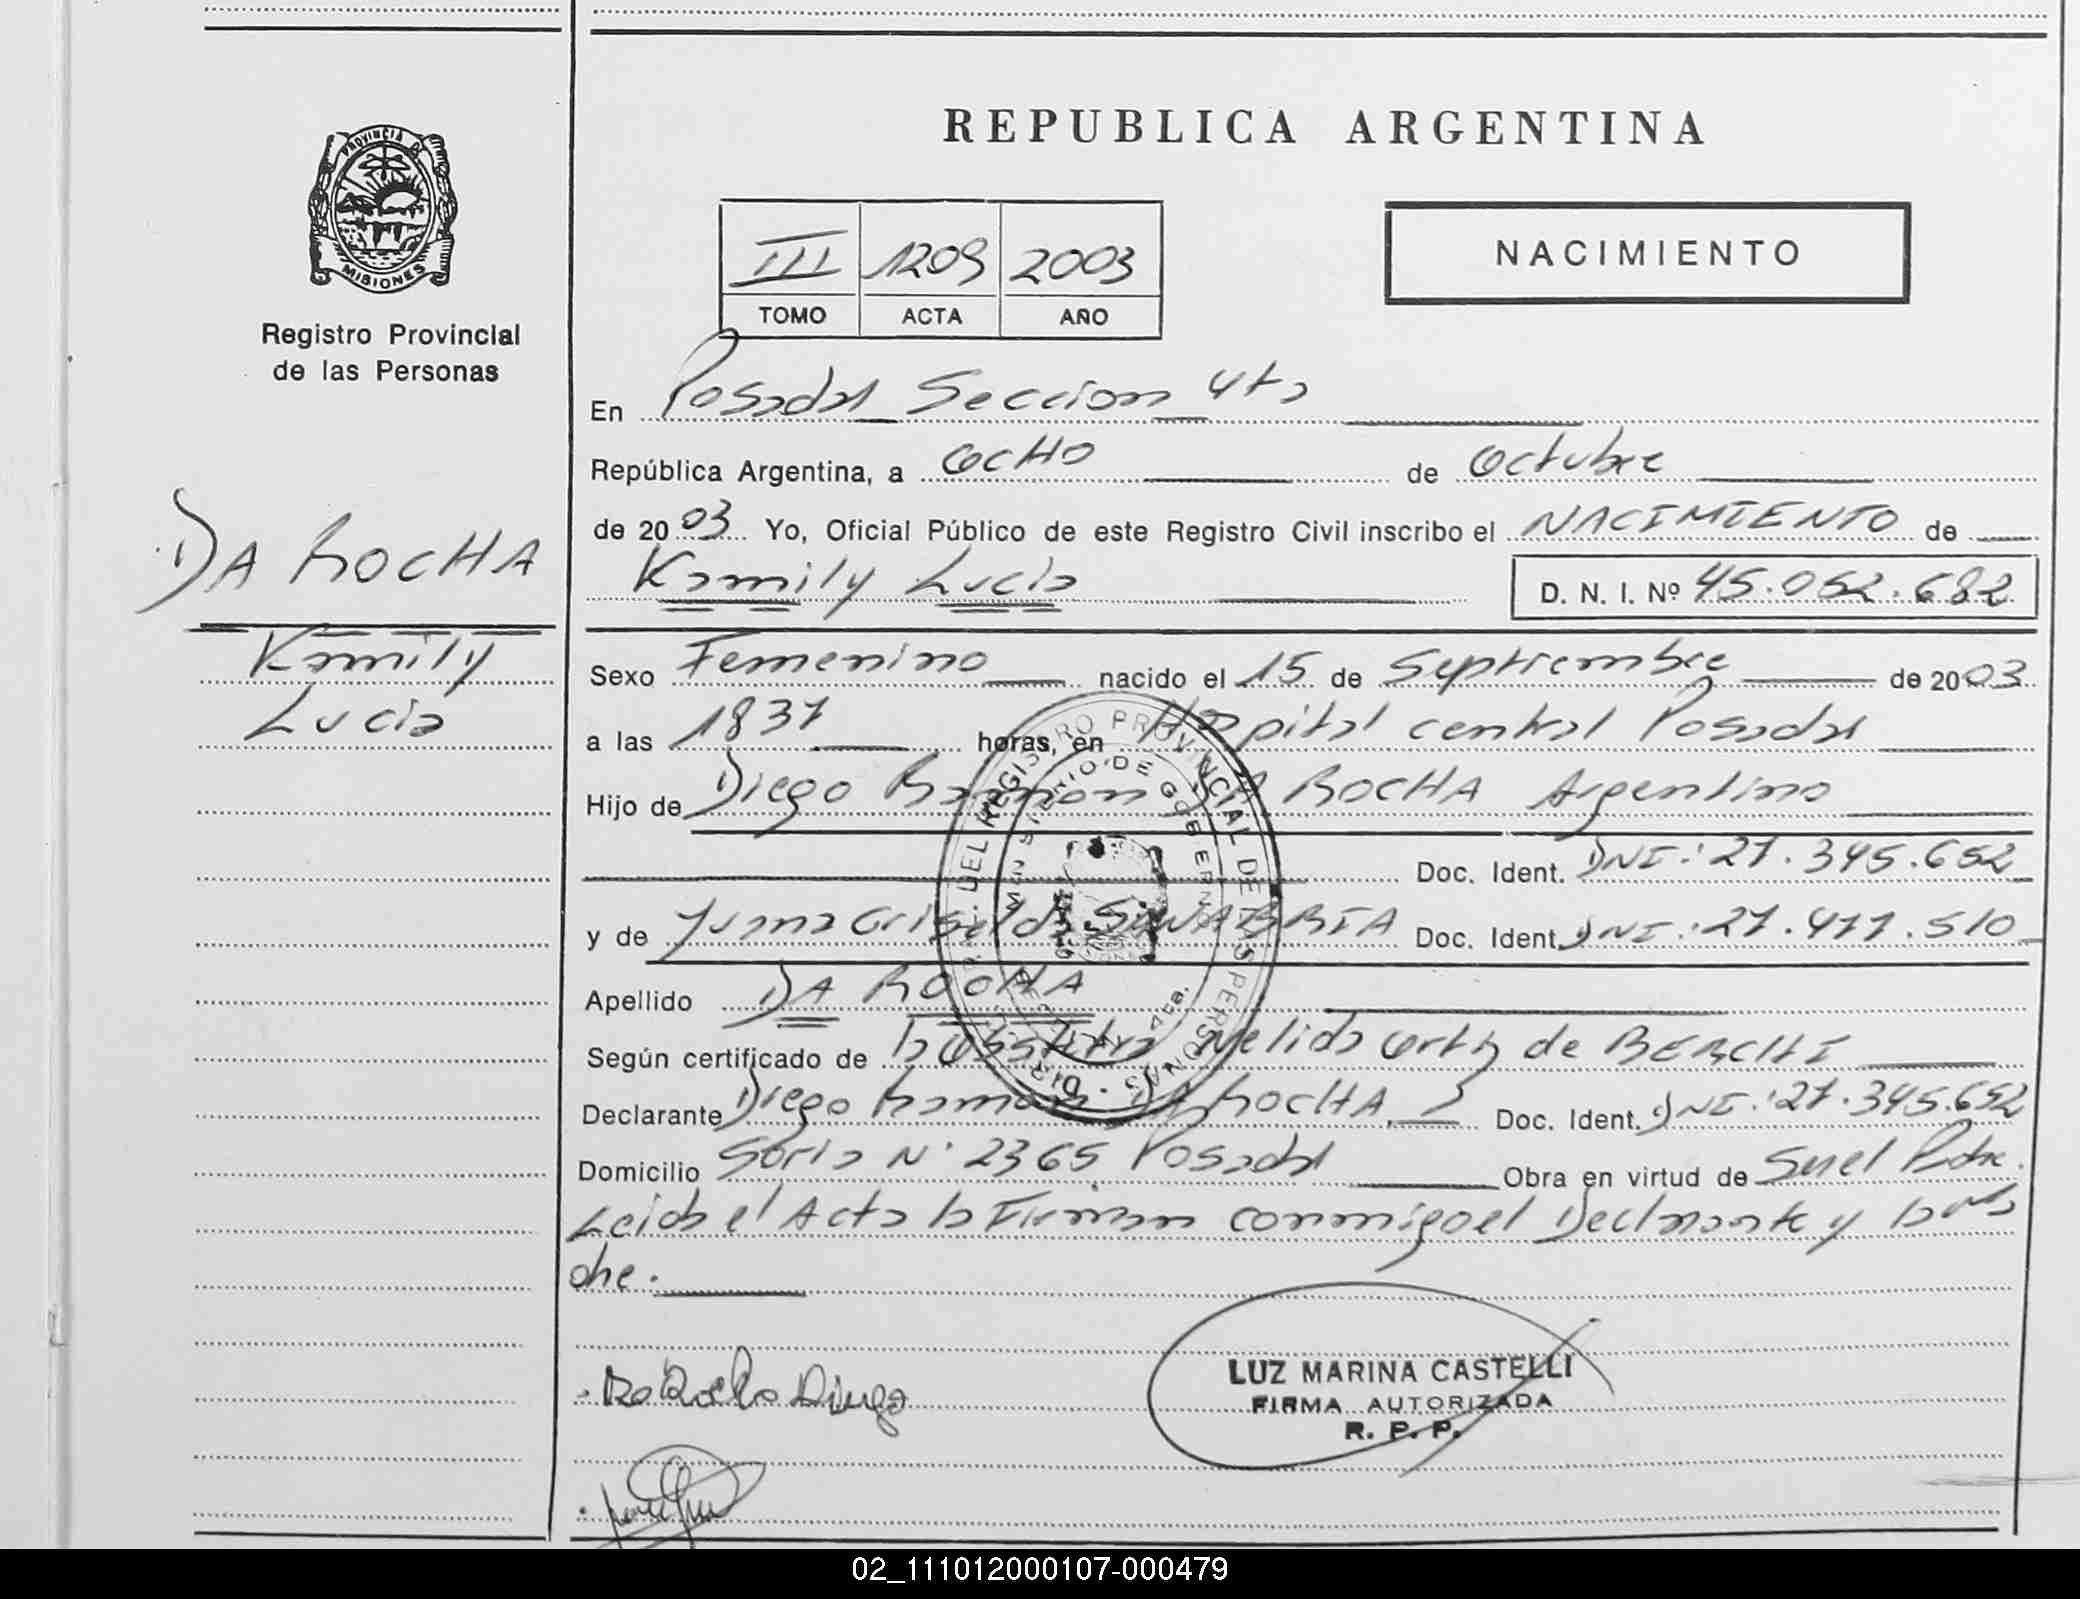 REPUBLICA ARGENTINA
PROVINCIA DE
MISIONES
Registro Provincial
de las Personas
III 1209 2003
TOMO ACTA AÑO
NACIMIENTO
En Posadas Seccion 4ta
República Argentina, a OCHO de Octubre
de 2003 Yo, Oficial Público de este Registro Civil inscribo el NACIMIENTO de
Kamily Lucia D. N. I. Nº 45.052.682
DA ROCHA
Kamily
Lucia
Sexo Femenino nacido el 15 de Septiembre de 2003
a las 1837 horas, en Hospital central Posadas
Hijo de Diego Ramon DA ROCHA Argentino
Doc. Ident. DNI: 27.395.652
y de Juana Griselda SANABRIA Doc. Ident. DNI: 27.477.510
Apellido DA ROCHA
Según certificado de la Obstetra Nelida Ortiz de BERCHI
Declarante Diego Ramon DA ROCHA Doc. Ident. DNI: 27.395.652
Domicilio Soria Nº 2365 Posadas Obra en virtud de Ser el Padre.
Leida el Acta la Firman conmigo el Declarante y la Ma
dre.
DIR. DEL REGISTRO PROVINCIAL DE LAS PERSONAS
MINISTERIO DE GOBIERNO
4ta.
Da Rocha Diego
LUZ MARINA CASTELLI
FIRMA AUTORIZADA
R. P. P.
02_111012000107-000479